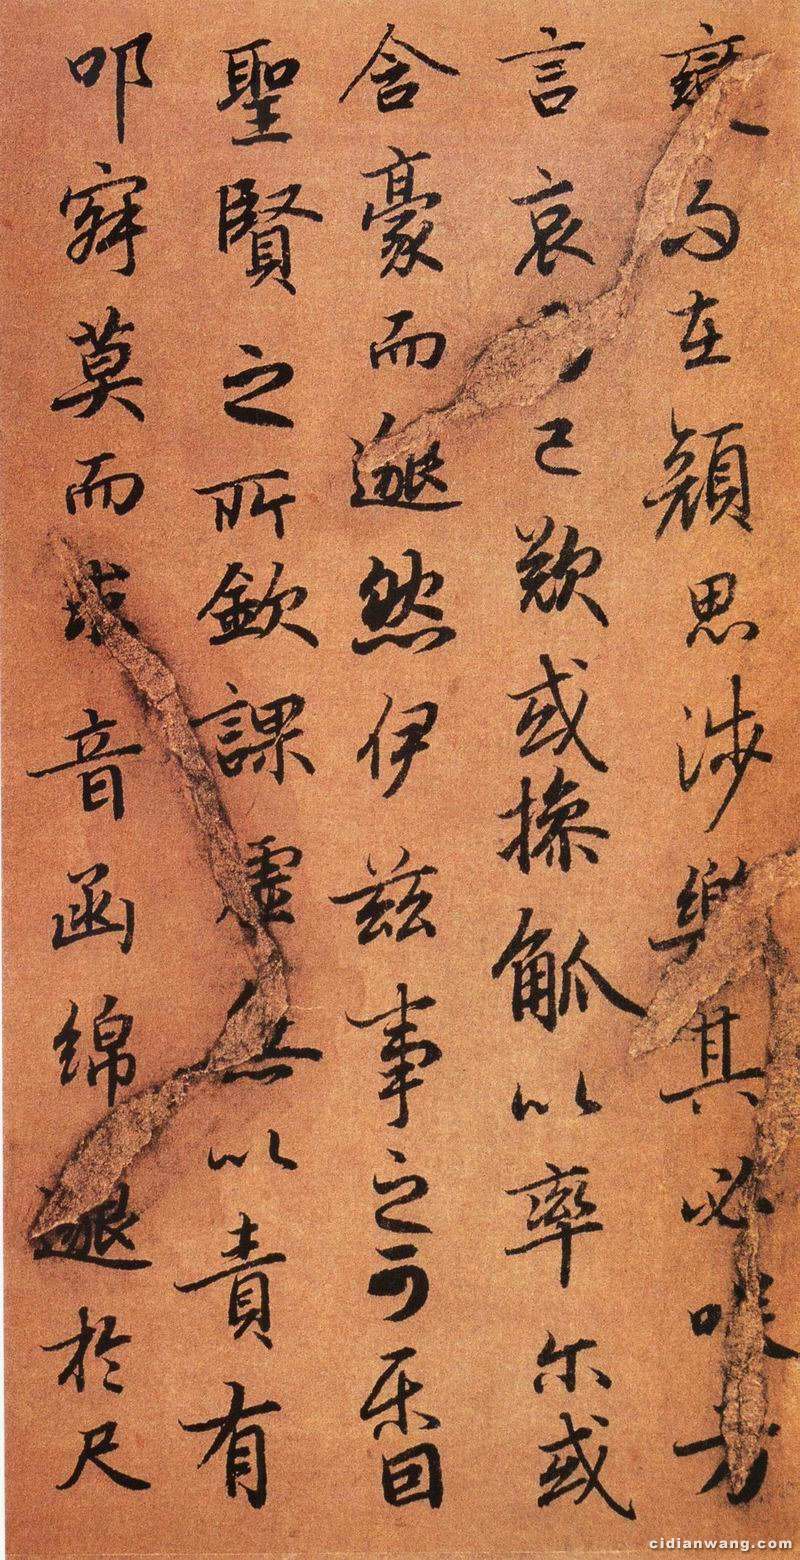 變而在顏思涉樂其必咲方
言哀而已歎或操觚以率尔或
含豪而邈然伊茲事之可樂固
聖賢之所欽課虛無以責有
叩寂莫而求音函綿邈於尺
cidianwang.com